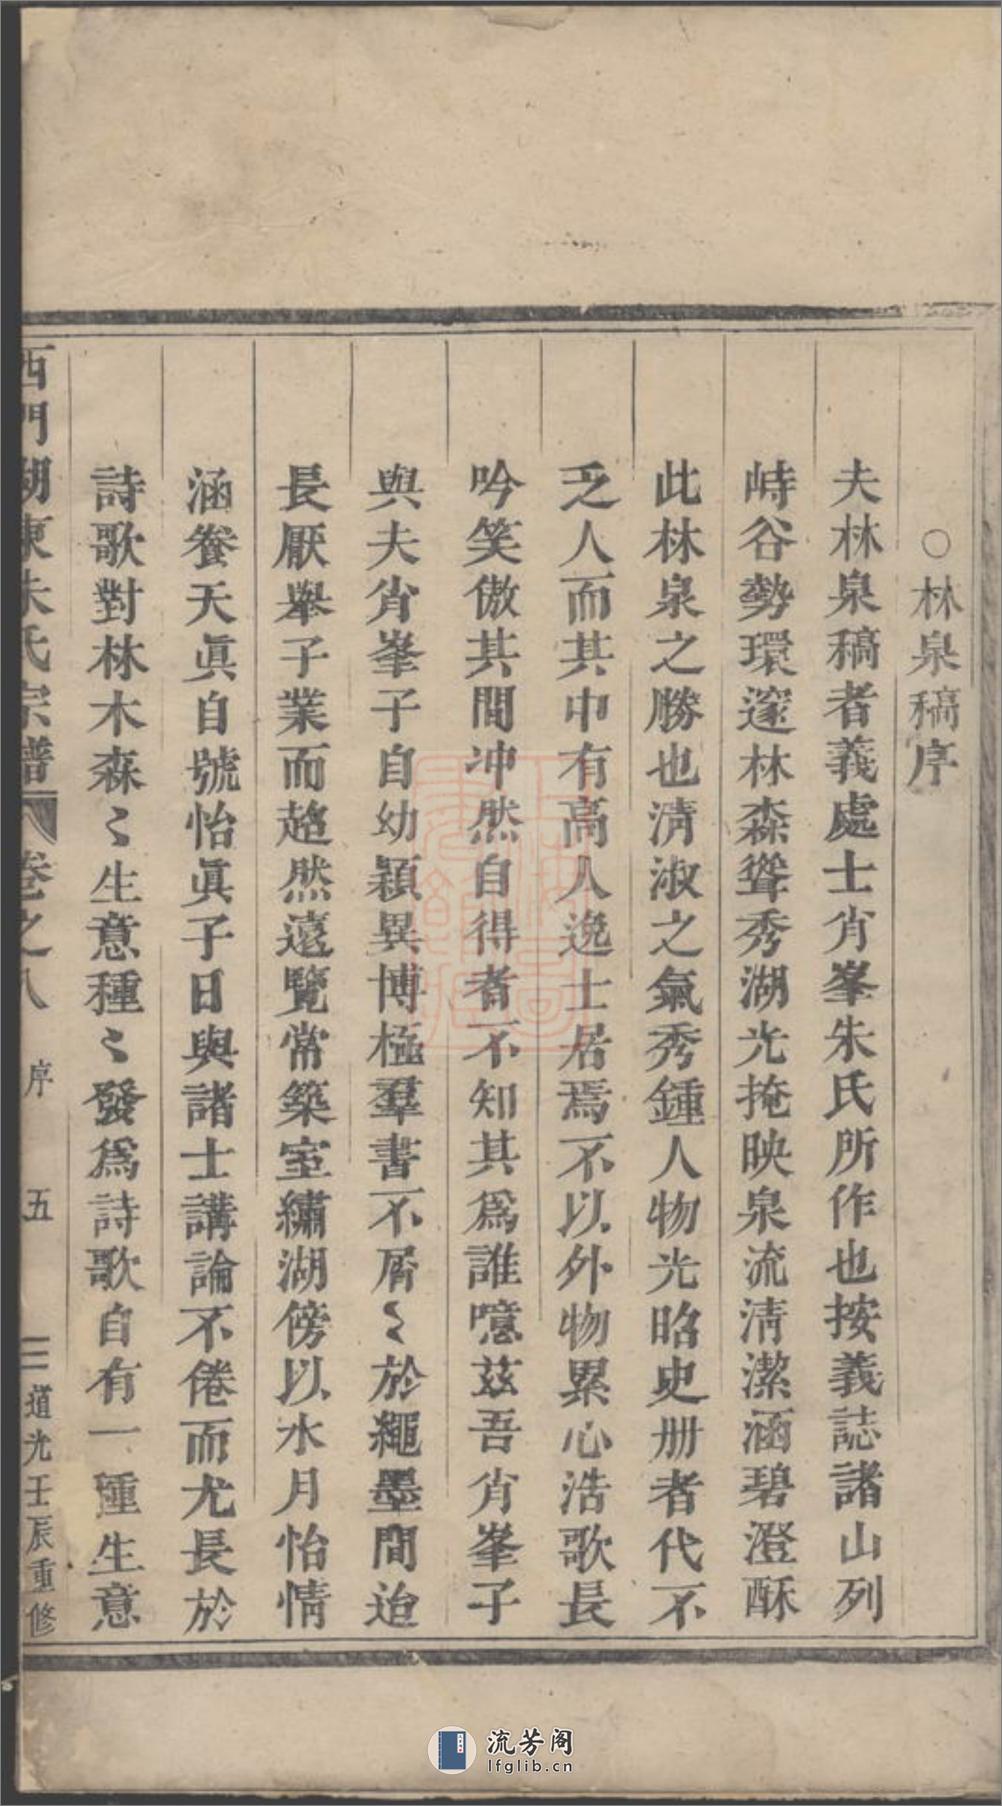 ○林泉稿序
夫林泉稿者義處士肖峯朱氏所作也按義誌諸山列
峙谷勢環邃林森聳秀湖光掩映泉流清潔涵碧澄酥
此林泉之勝也淸淑之氣秀鍾人物光昭史册者代不
乏人而其中有高人逸士居焉不以外物累心浩歌長
吟笑傲其間冲然自得者不知其爲誰噫兹吾肖峯子
與夫肖峯子自幼穎異博極羣書不屑〻於繩墨間迨
長厭舉子業而超然遠覽常築室繡湖傍以水月怡情
涵養天眞自號怡眞子日與諸士講論不倦而尤長於
詩歌對林木森〻生意種〻發爲詩歌自有一種生意
西門湖東朱氏宗譜 卷之八 序 五 道光壬辰重修
流芳阁
lfglib.cn